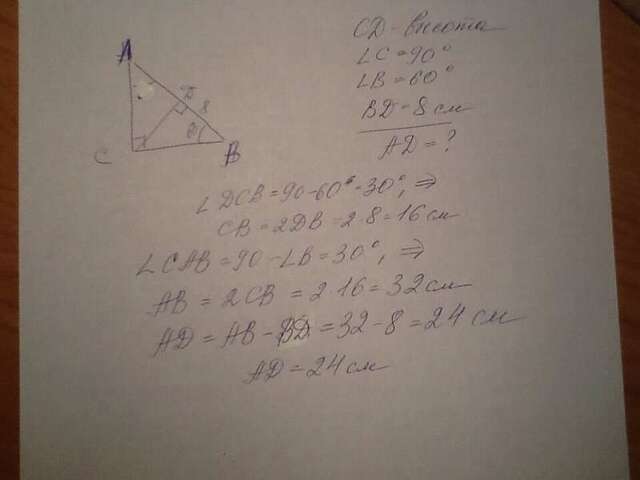 A
D
8
C
B
CD - высота
∠C = 90°
∠B = 60°
BD = 8 см
AD = ?
∠DCB = 90 - 60° = 30°, ⇒
CB = 2DB = 2·8 = 16 см
∠CAB = 90 - ∠B = 30°, ⇒
AB = 2CB = 2·16 = 32 см
AD = AB - BD = 32 - 8 = 24 см
AD = 24 см